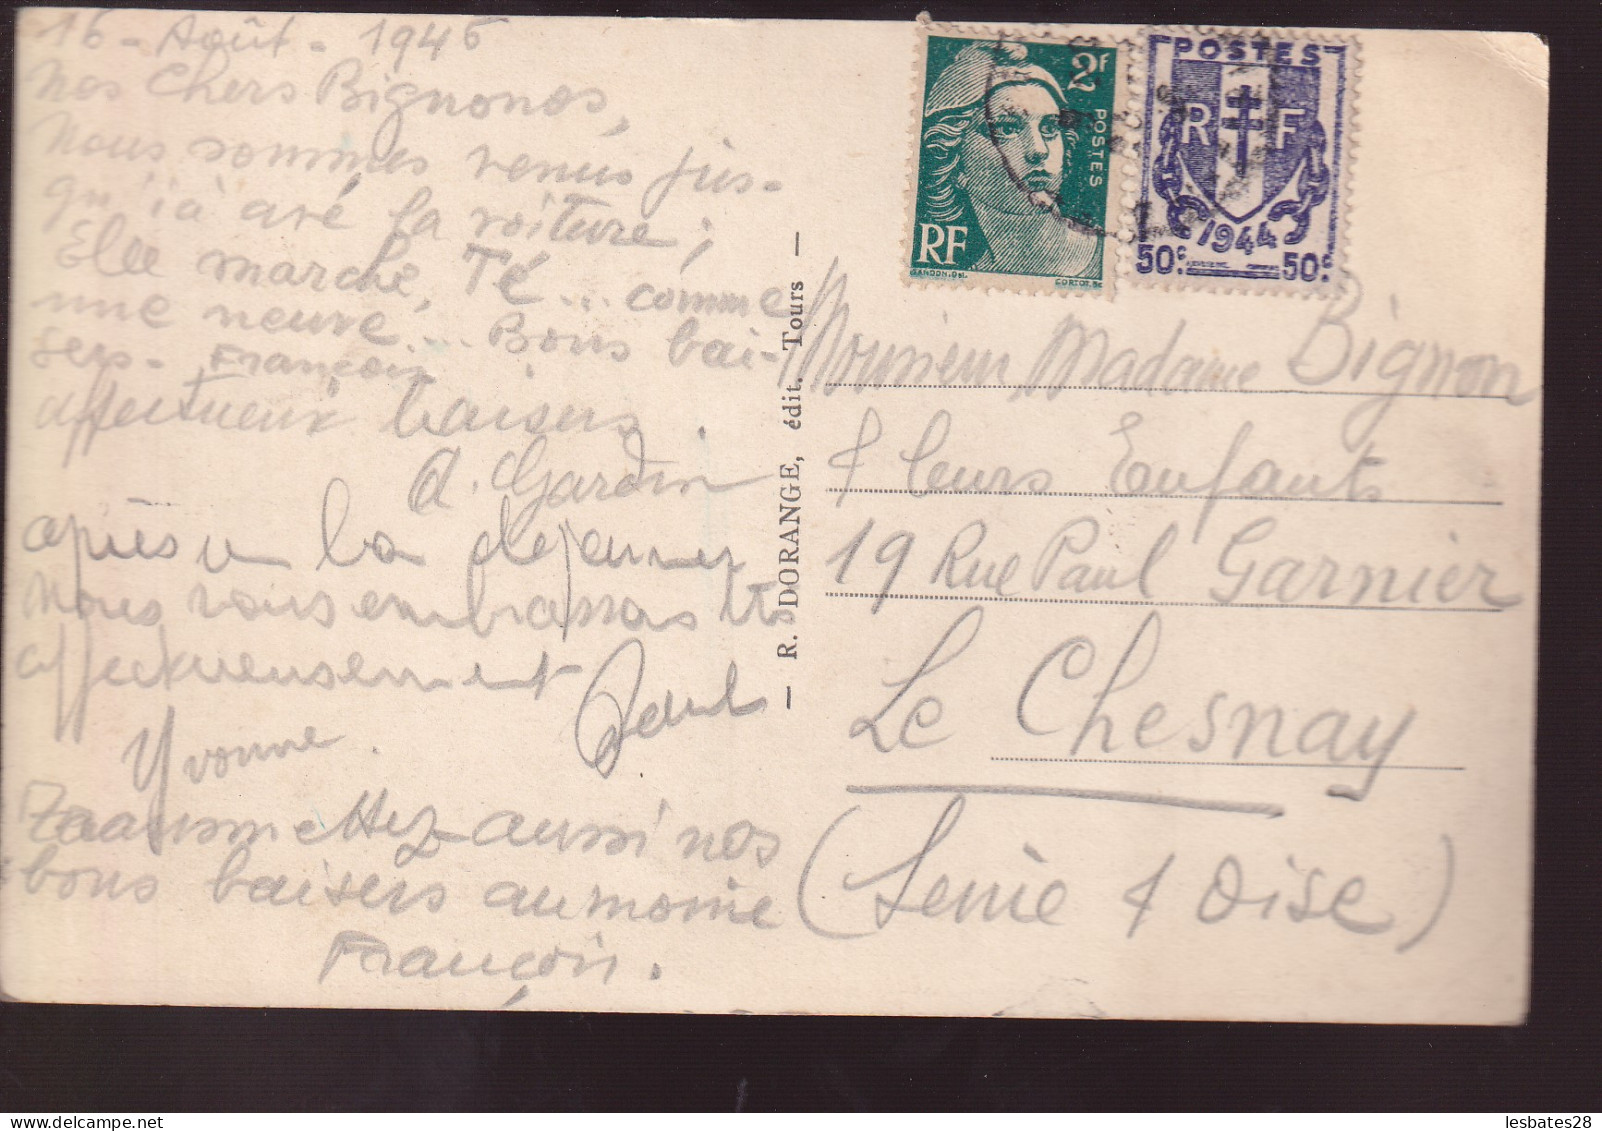 16 - Août - 1946
Nos Chers Bignonos,
Nous sommes venus jus-
qu'ià avé la voiture ;
Elle marche, Té... comme
une neuve... Bons bai-
sers - François
affectueux baisers.
d. Gardin
après un bon dejeuner
Nous vous embrassons tts
affectueusement
Yvonne.
transmettez aussi nos
bons baisers à
François.
R. DORANGE, édit. Tours
2f
POSTES
RF
GANDON. Del.
CORTOT. Sc
POSTES
R F
1944
50c 50c
Monsieur Madame Bignon
& leurs Enfants
19 Rue Paul Garnier
Le Chesnay
(Seine & Oise)
lesbates28